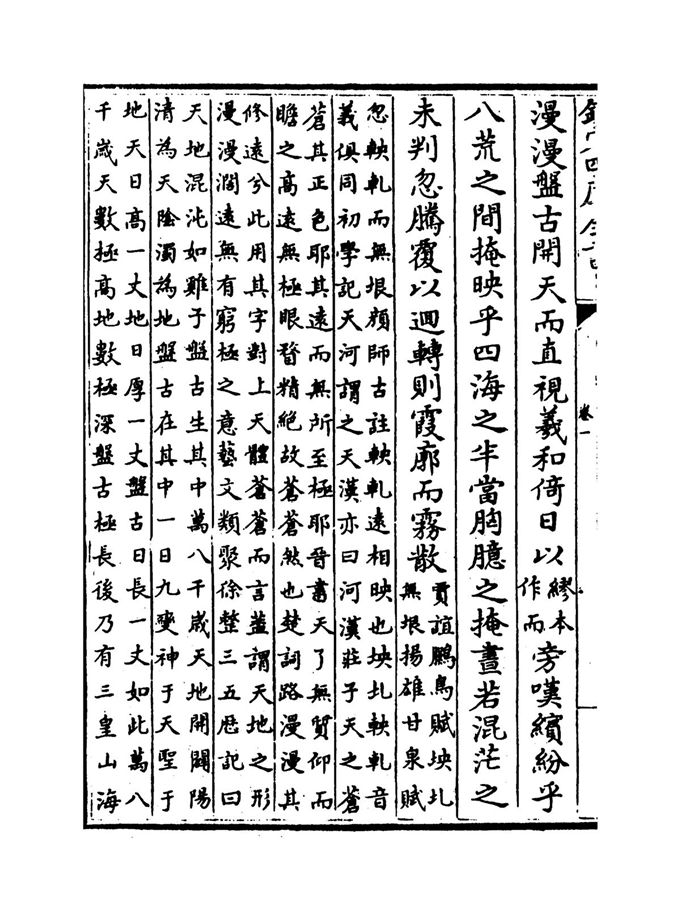 卷一
漫漫盤古開天而直視羲和倚日以繆本作而旁嘆繽紛乎
八荒之間掩映乎四海之半當胸臆之掩晝若混茫之
未判忽騰覆以迴轉則霞廓而霧散
賈誼鵬鳥賦坱圠
無垠揚雄甘泉賦
忽軮軋而無垠顔師古註軮軋遠相映也坱圠軮軋音
義俱同初學記天河謂之天漢亦曰河漢莊子天之蒼
蒼其正色耶其遠而無所至極耶晉書天了無質仰而
瞻之高遠無極眼瞀精絶故蒼蒼然也楚詞路漫漫其
修遠兮此用其字對上天體蒼蒼而言蓋謂天地之形
漫漫濶遠無有窮極之意藝文類聚徐整三五厯記曰
天地混沌如雞子盤古生其中萬八千歲天地開闢陽
清為天陰濁為地盤古在其中一日九變神于天聖于
地天日高一丈地日厚一丈盤古日長一丈如此萬八
千歲天數極高地數極深盤古極長後乃有三皇山海